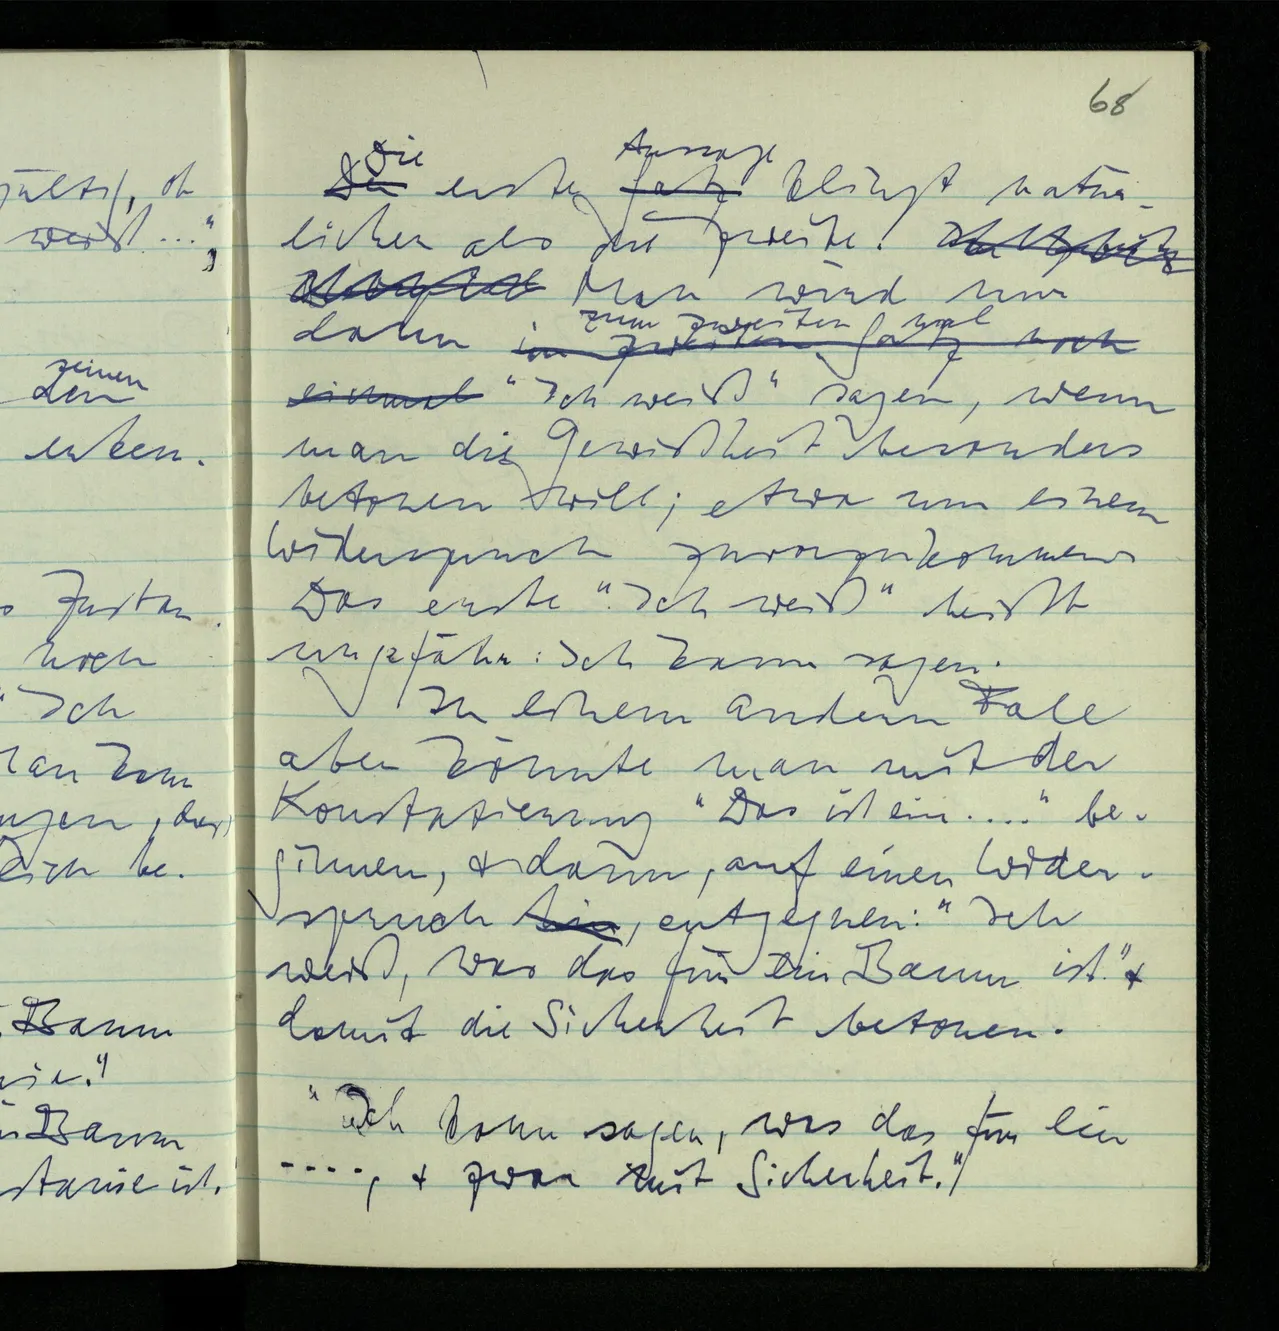 68
gültig, ob
weiß ...";
seinen
den
enken.
s Zustan
noch
" Ich
man kann
ungen, daß
eich be-
Baum
nie."
Baum
stanie ist.
Die Aussage
Der erste Satz klingt natür-
licher als die zweite.
Man wird nur
zum zweiten mal
dann im zweiten Satz noch
einmal "Ich weiß" sagen, wenn
man die Gewißheit besonders
betonen will; etwa um einem
Widerspruch zuvorzukommen.
Das erste "Ich weiß" heißt
ungefähr: Ich kann sagen.
In einem andern Falle
aber könnte man mit der
Konstatierung "Das ist ein ...." be-
ginnen, & dann, auf einen Wider-
spruch hin, entgegnen: "Ich
weiß, was das für ein Baum ist." &
damit die Sicherheit betonen.
"Ich kann sagen, was das für ein
...., & zwar mit Sicherheit."